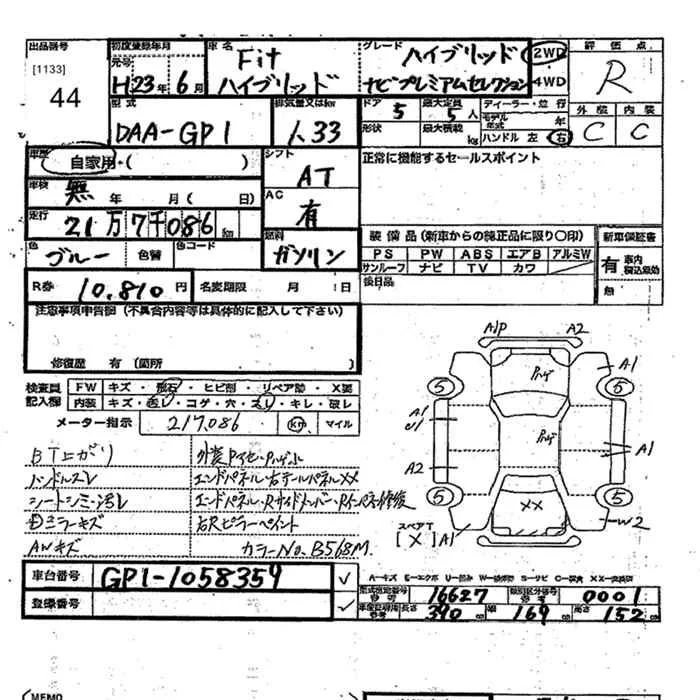 出品番号 初度登録年月 車名 グレード 評価点
[1133] 元号 Fit ハイブリッド 2WD R
44 H23年6月 ハイブリッド ナビプレミアムセレクション 4WD
型式 排気量又は ドア 5 最大定員 5人 ディーラー・並行 外装 内装
DAA-GP1 1.33 形状 最大積載 kg モデル年式 年 C C
ハンドル 左 右
車歴 自家用・( ) シフト AT 正常に機能するセールスポイント
車検 無 年 月( 日) AC 有
走行 21万7千086km 燃料 ガソリン 装備品(新車からの純正品に限り〇印) 新車保証書
色 ブルー 色替 色コード PS PW ABS エアB アルミW 有 車内
サンルーフ ナビ TV カワ 無
R券 10,810円 名変期限 月 日 後日品
注意事項申告欄(不具合内容等は具体的に記入して下さい)
修復歴 有(箇所 )
検査員記入欄 FW キズ・飛石・ヒビ割・リペア跡・X要
内装 キズ・汚レ・コゲ・穴・スレ・キレ・破レ
メーター指示 217,086 km マイル
A1P A2
A1
5 5
A1 A1
A2
XX
5 5
スペアT [X] A1 W2
BT上がり
ハンドルスレ エンドパネル・右テールパネルXX
シートシミ・汚レ
キズ 右Rピラーペイント
AWキズ カラーNo. B568M.
車台番号 GP1-1058359
登録番号
A-キズ E-エクボ U-凹み S-サビ
型式指定番号 16627 類別区分番号 0001
長さ 390cm 幅 169cm 高さ 152cm
MEMO